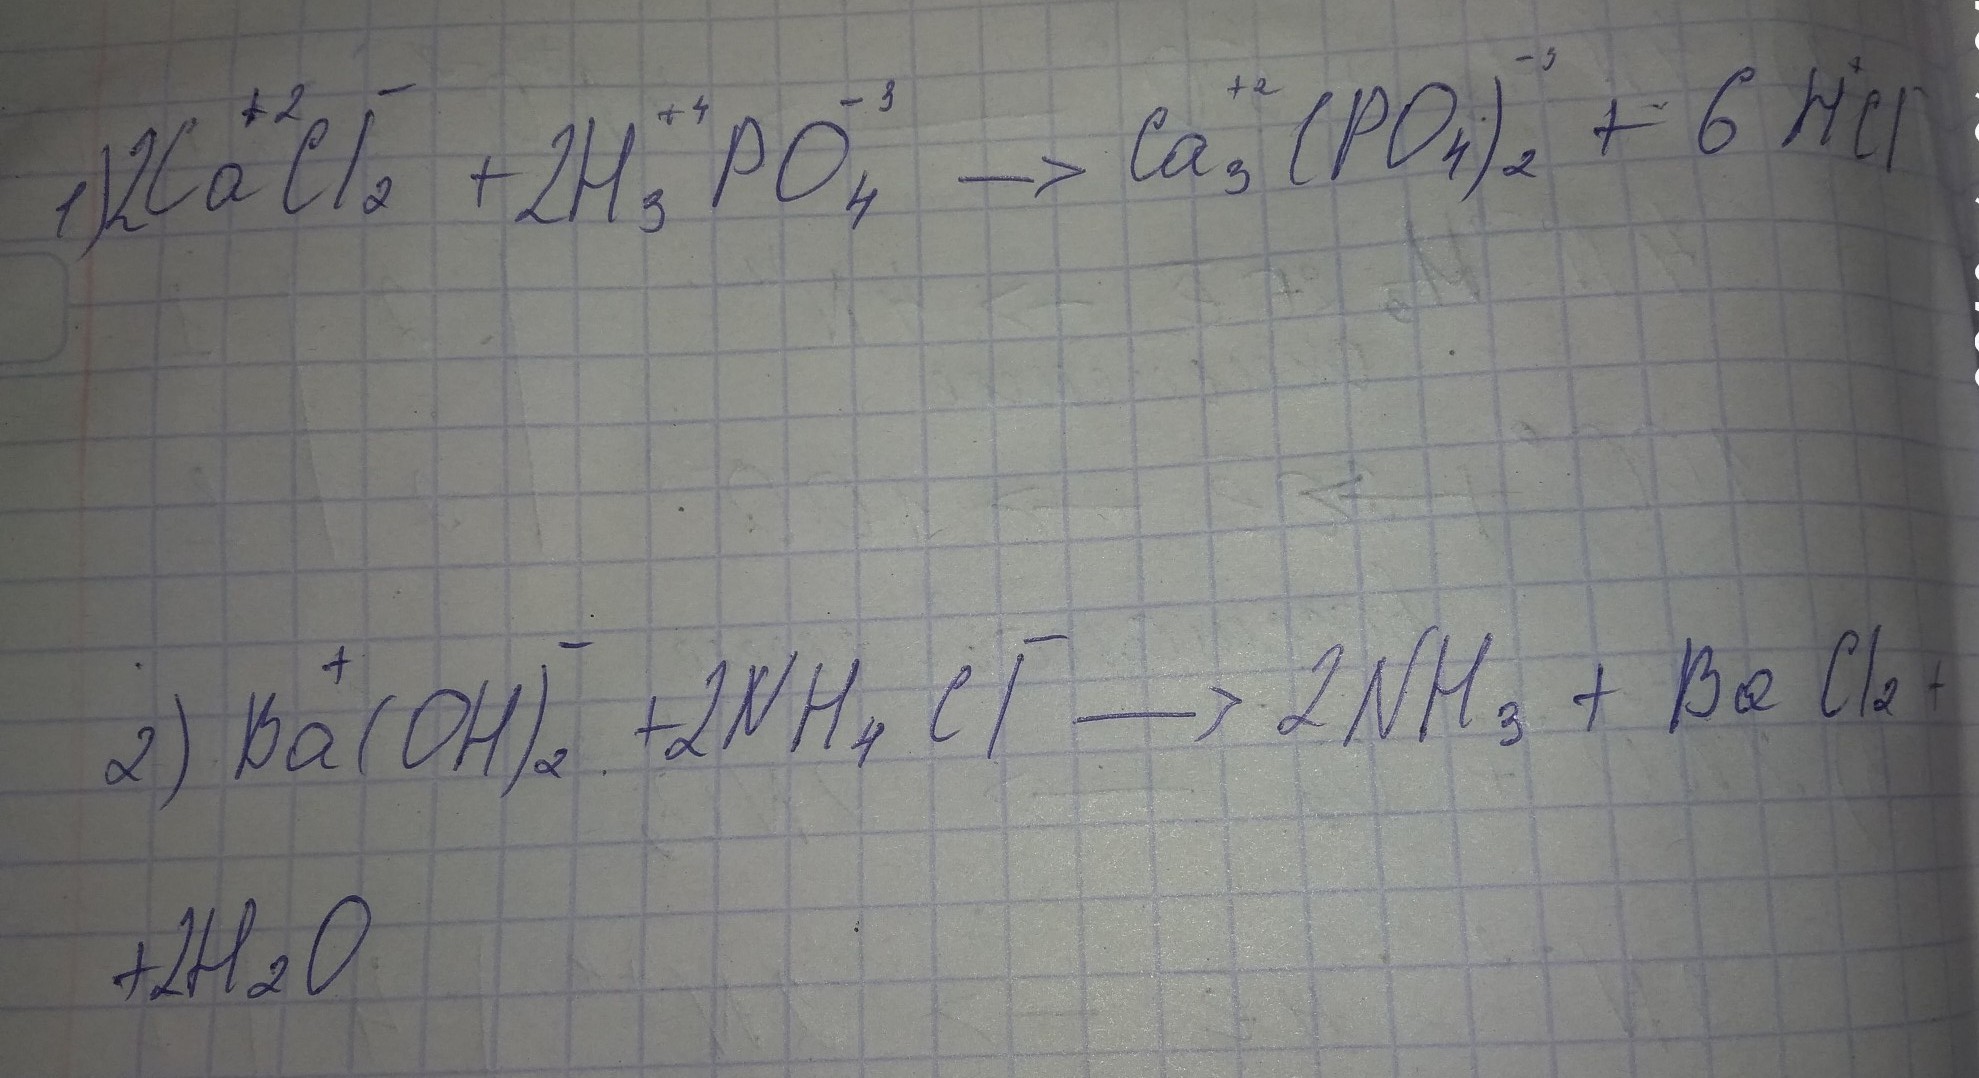 1) 2Ca⁺²Cl₂⁻ + 2H₃⁺⁴PO₄⁻³ —> Ca₃⁺²(PO₄)₂⁻³ + 6H⁺Cl⁻
2) Ba⁺(OH)₂⁻ + 2NH₄Cl⁻ —> 2NH₃ + BaCl₂ +
+2H₂O